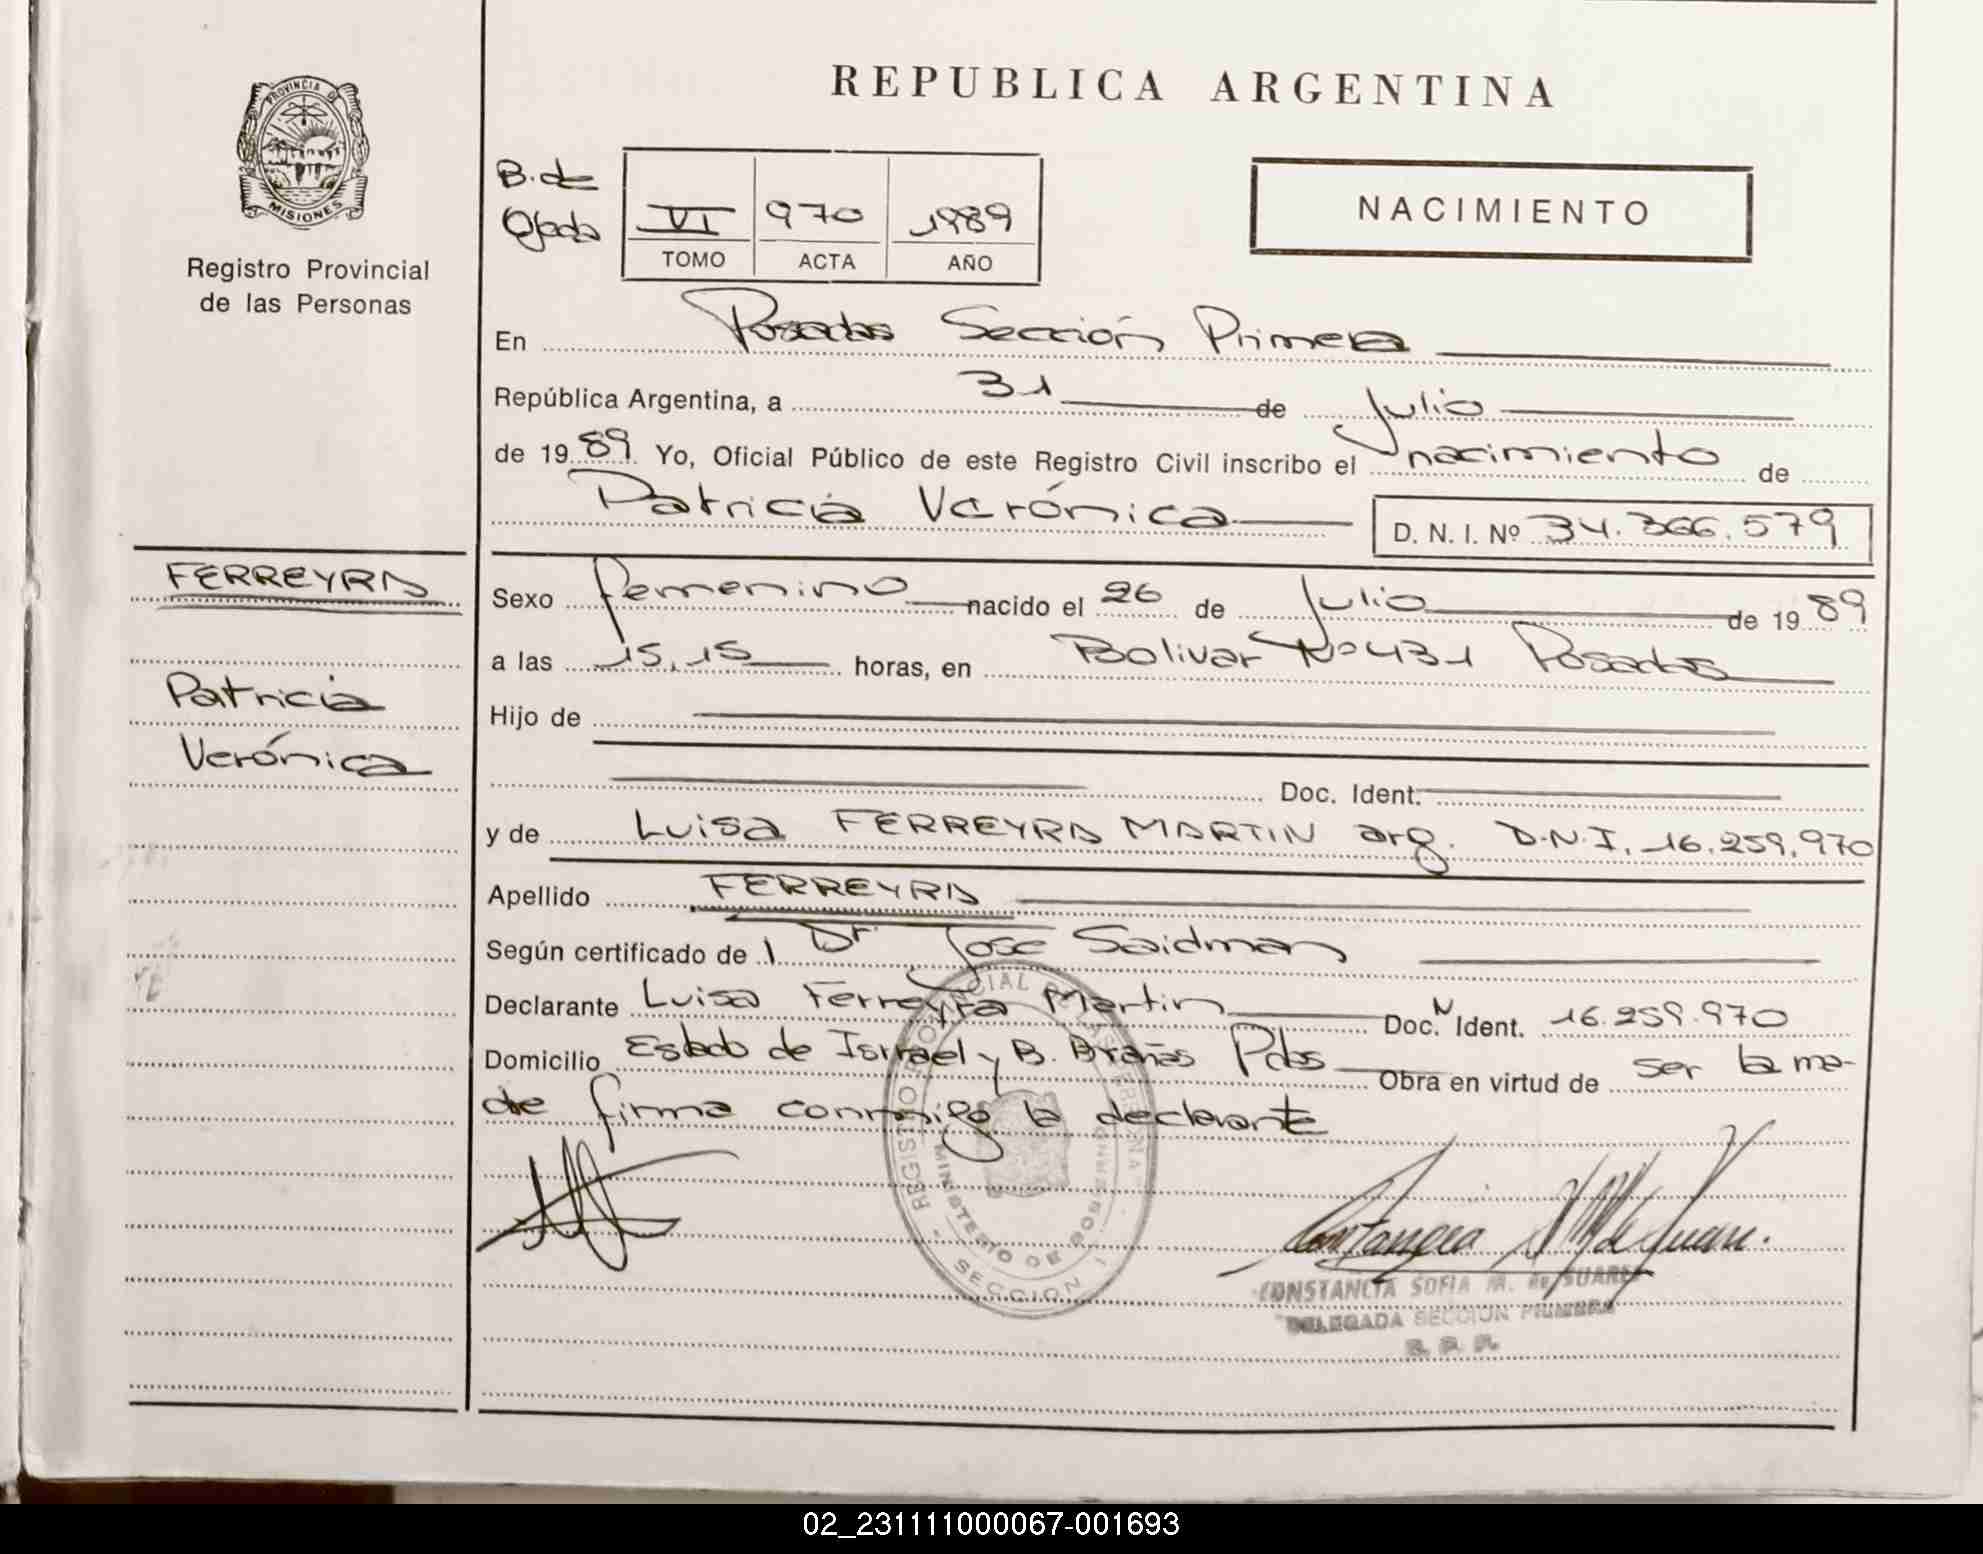 REPUBLICA ARGENTINA
PROVINCIA DE
MISIONES
Registro Provincial
de las Personas
B. de
VI 970 1989
TOMO ACTA AÑO
NACIMIENTO
En Posadas Sección Primera
República Argentina, a 31 de Julio
de 1989 Yo, Oficial Público de este Registro Civil inscribo el nacimiento de
Patricia Verónica D. N. I. Nº 34.366.579
FERREYRA
Patricia
Verónica
Sexo femenino nacido el 26 de Julio de 1989
a las 15,15 horas, en Bolivar Nº 431 Posadas
Hijo de
Doc. Ident.
y de Luisa FERREYRA MARTIN arg. D.N.I. 16.259.970
Apellido FERREYRA
Según certificado de l Dr. Jose Saidman
Declarante Luisa Ferreyra Martin Doc. N Ident. 16.259.970
Domicilio Estado de Isrrael y B. Brañas Pdas Obra en virtud de ser la ma-
dre firma conmigo la declarante
REGISTRO PROVINCIAL DE LAS PERSONAS
MINISTERIO DE GOBIERNO
SECCION I
CONSTANCIA SOFIA M. de SUAREZ
DELEGADA SECCION PRIMERA
02_231111000067-001693